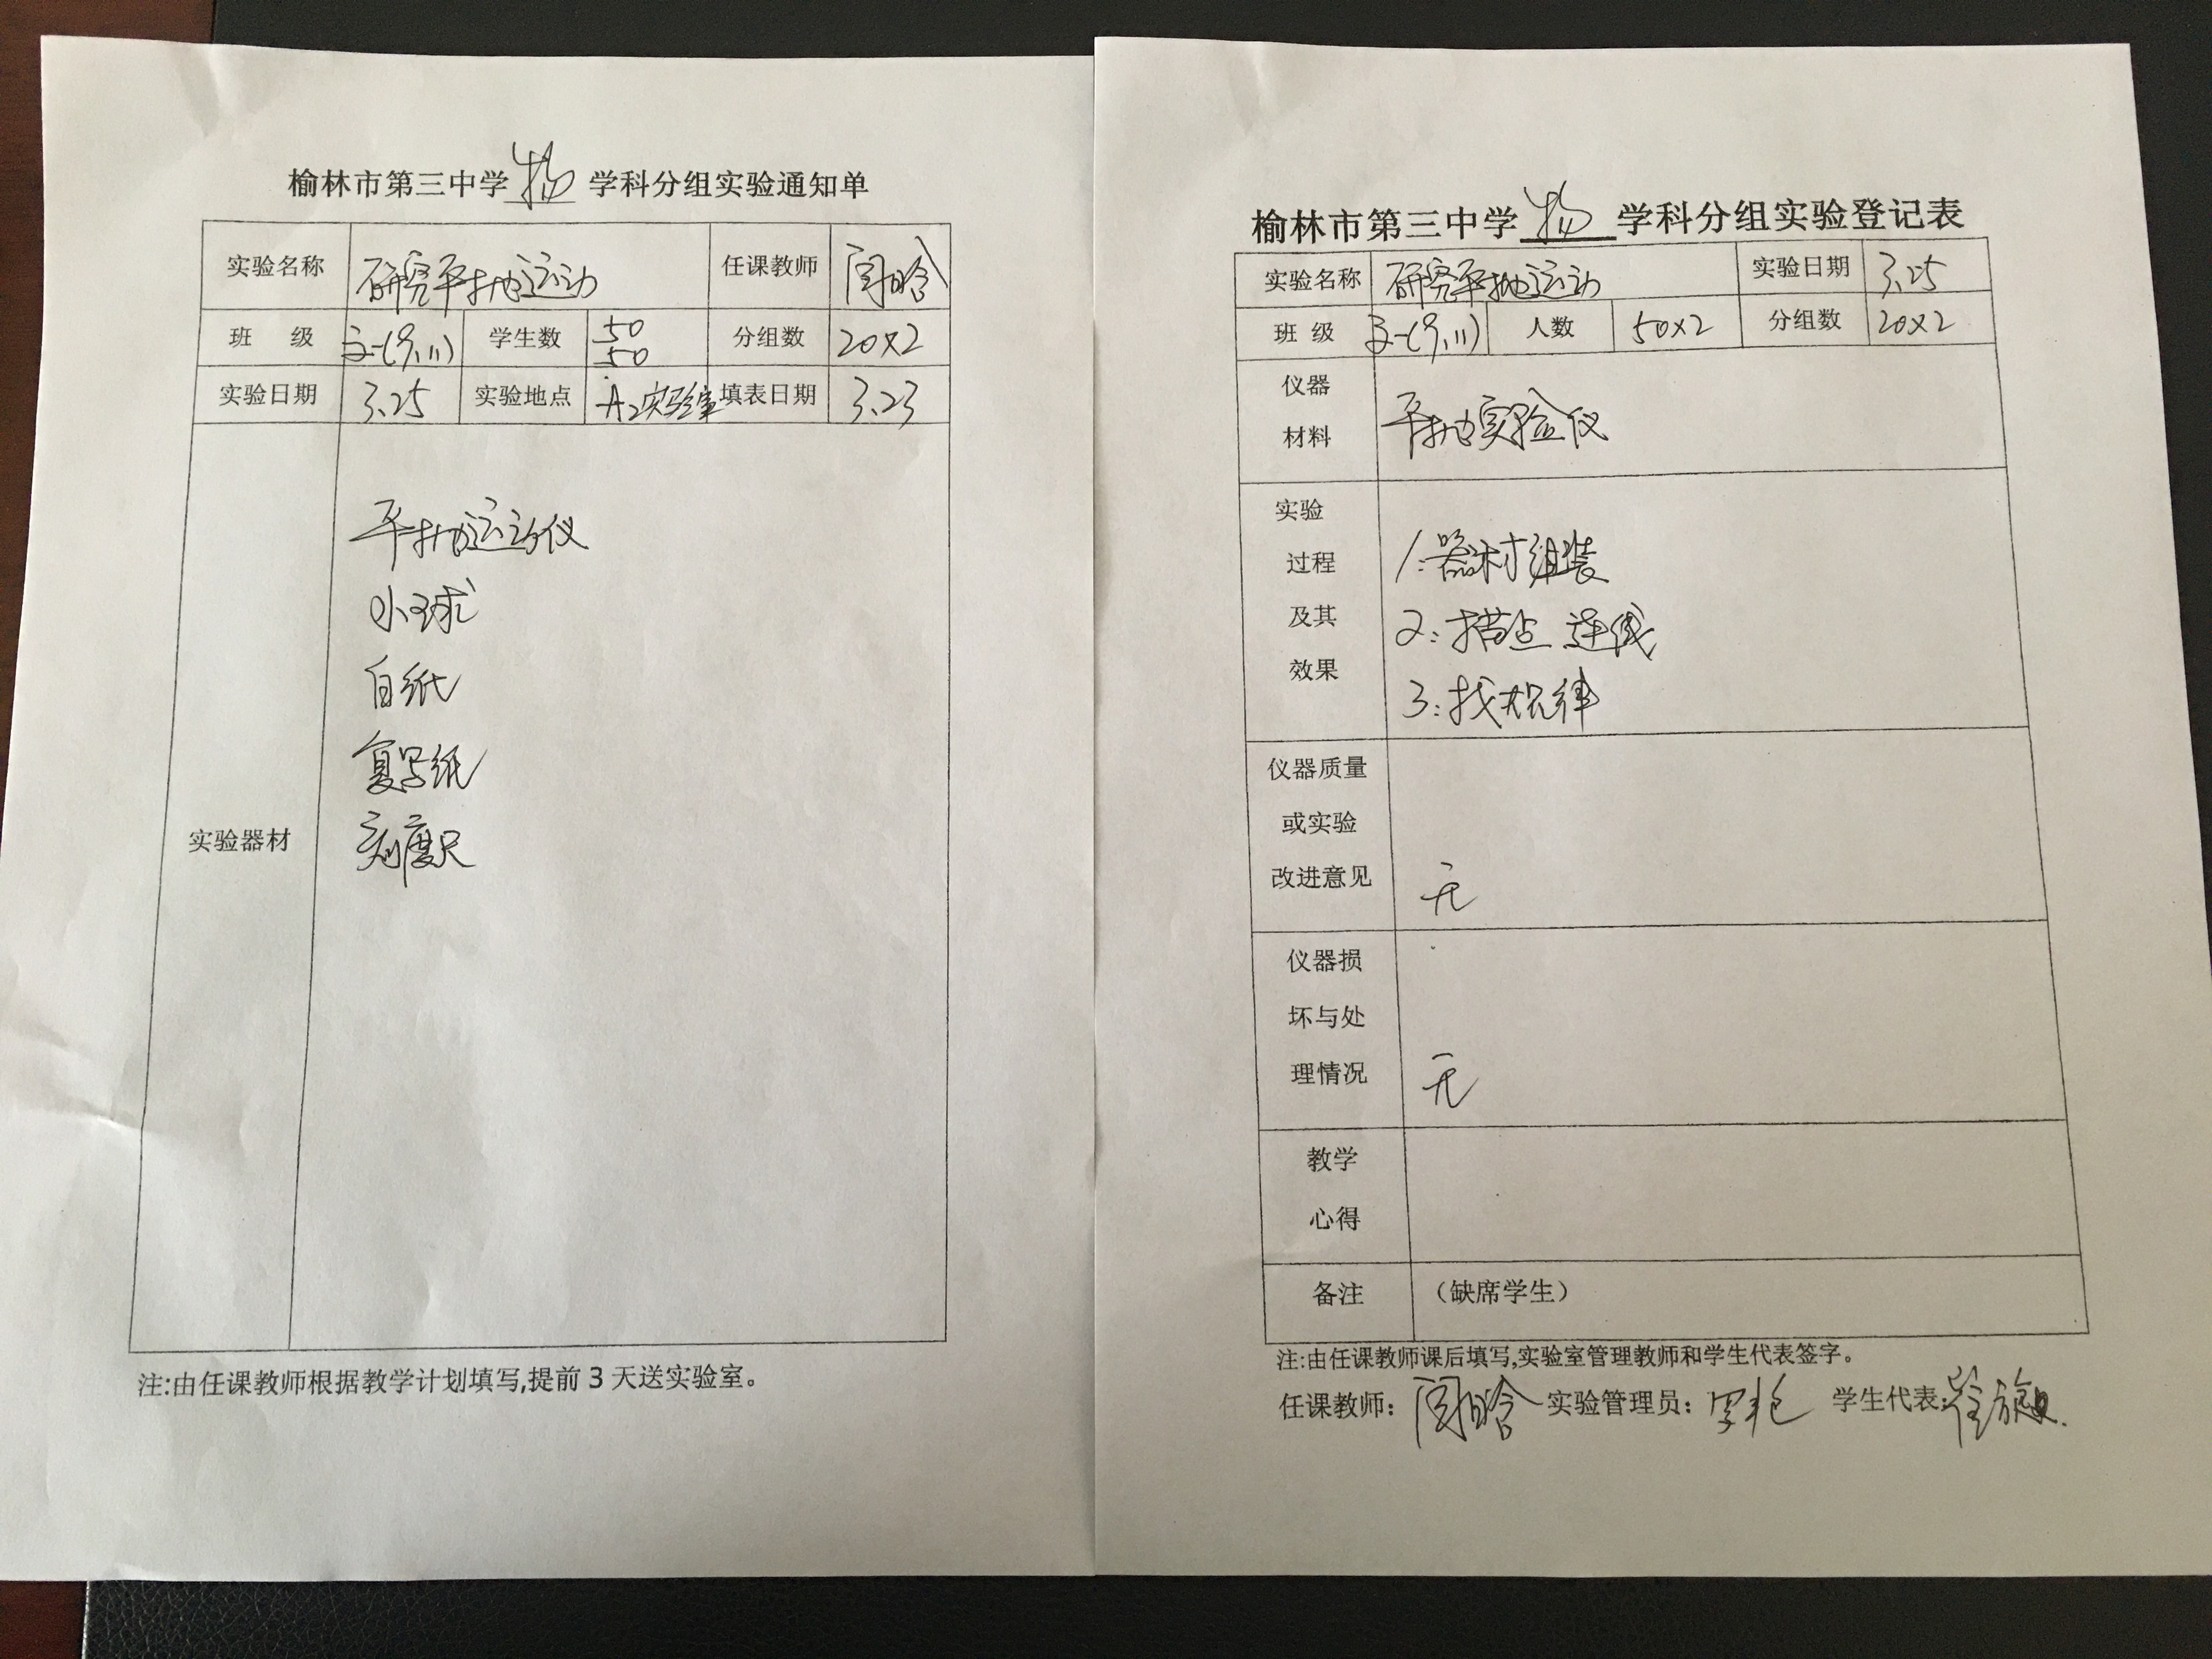 榆林市第三中学 物 学科分组实验通知单
实验名称 研究平抛运动 任课教师 闫晗
班 级 高一(9,11) 学生数 50 50 分组数 20×2
实验日期 3.25 实验地点 A2实验室 填表日期 3.23
实验器材
平抛运动仪
小球
白纸
复写纸
刻度尺
注:由任课教师根据教学计划填写,提前 3 天送实验室。
榆林市第三中学 物 学科分组实验登记表
实验名称 研究平抛运动 实验日期 3.25
班 级 高一(9,11) 人数 50×2 分组数 20×2
仪器
材料
平抛实验仪
实验
过程
及其
效果
1:器材组装
2:描点 连线
3:找规律
仪器质量
或实验
改进意见
无
仪器损
坏与处
理情况
无
教学
心得
备注 (缺席学生)
注:由任课教师课后填写,实验室管理教师和学生代表签字。
任课教师: 闫晗 实验管理员: 学生代表: